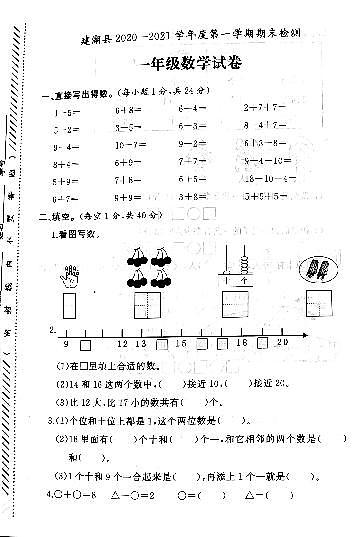 建湖县 2020-2021 学年度第一学期期末检测
一年级数学试卷
一、直接写出得数。(每小题 1 分,共 24 分)
6+8= 6-4= 2+7+7=
3-2= 6-3=
9-4= 10-7= 9-2= 6+3-8=
8+4= 6+9= 7+7= 9-4-10=
8+9= 7+8= 6+5= 18-10-4=
6+7= 9+9= 3+8= 5+5+5=
二、填空。(每空 1 分,共 40 分)
1.看图写数。
十 个
2.
9 □ 12 □ □ □ 18 □ 20
(1)在□里填上合适的数。
(2)14 和 16 这两个数中,( )接近 10,( )接近 20。
(3)比 12 大,比 17 小的数共有( )个。
3.(1)个位和十位上都是 1,这个两位数是( )。
(2)18 里面有( )个十和( )个一,和它相邻的两个数是( )
和( )。
(3)1 个十和 9 个一合起来是( ),再添上 1 个一就是( )。
4.○+○=8 △-○=2 ○=( ) △=( )